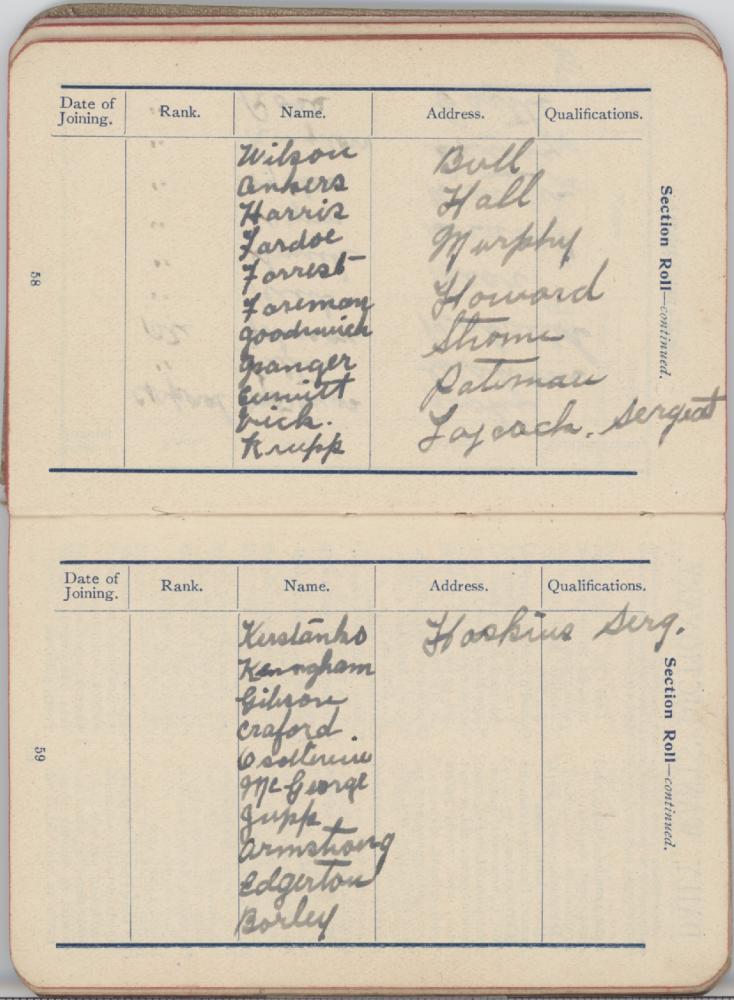 Date of Joining. Rank. Name. Address. Qualifications.
Wilson Bull
Ankers Hall
Harris
Fardoe Murphy
Forrest
Foreman Howard
Goodewich Strome
Granger Pateman
Vick. Laycock. Sergeat
Krupp
58
Section Roll—continued.
Date of Joining. Rank. Name. Address. Qualifications.
Kerstanko Hoskins Serg.
Keningham
Gibson
Craford
McGeorge
Jupp
Armstrong
Edgerton
Borley
59
Section Roll—continued.